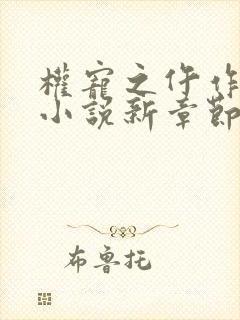 權寵之仵作
小說新章節
布魯托